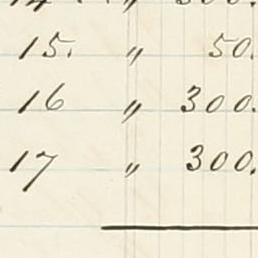 14 〃 300.
15. 〃 50.
16 〃 300.
17 〃 300.